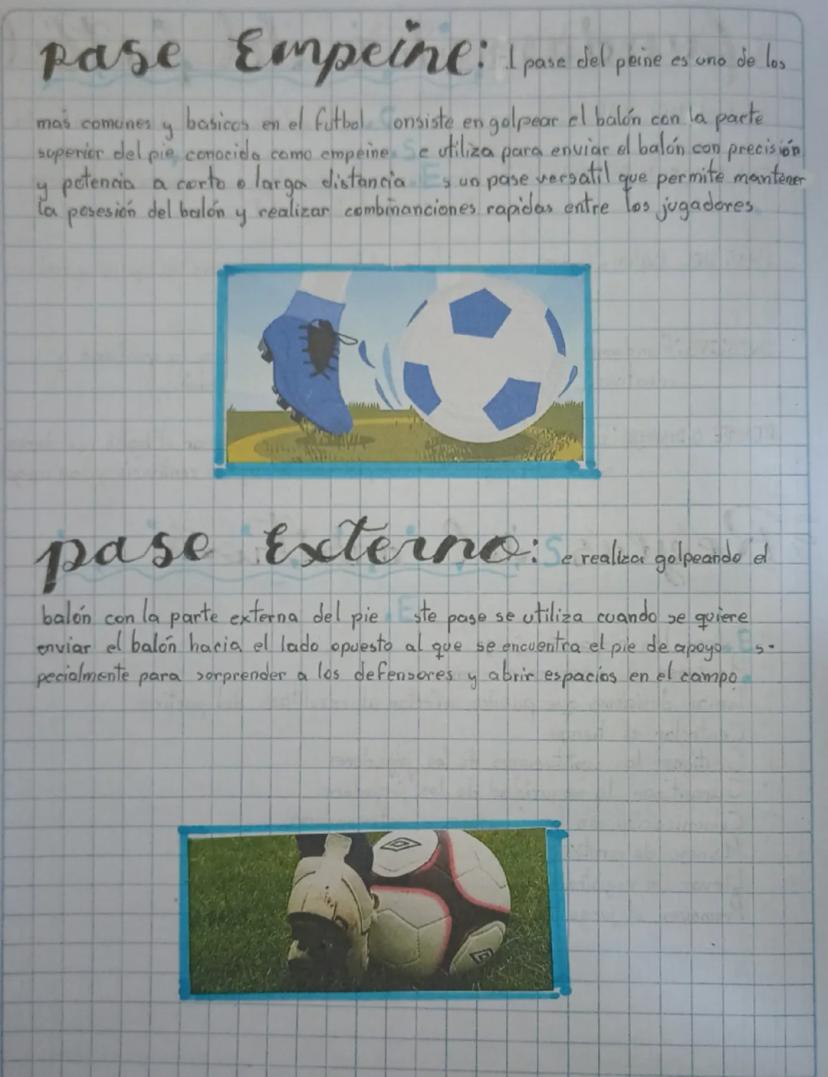 pase Empeine: l pase del peine es uno de los
mas comunes y basicos en el futbol. Consiste en golpear el balón con la parte
superior del pie, conocida como empeine. Se utiliza para enviar el balón con precisión
y potencia a corta o larga distancia. Es un pase versatil que permite mantener
la posesión del balón y realizar combinanciones rapidas entre los jugadores
pase Externo: Se realiza golpeando el
balón con la parte externa del pie. Este pase se utiliza cuando se quiere
enviar el balón hacia el lado opuesto al que se encuentra el pie de apoyo. Es-
pecialmente para sorprender a los defensores y abrir espacios en el campo.